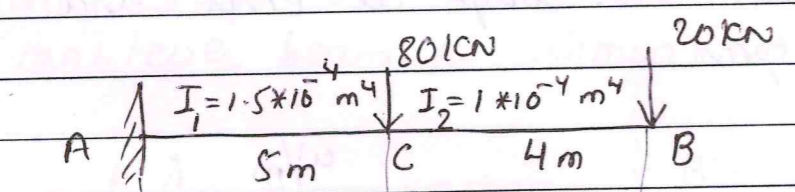 80KN 20KN
I₁=1.5*10⁻⁴ m⁴ I₂=1*10⁻⁴ m⁴
A 5m C 4m B